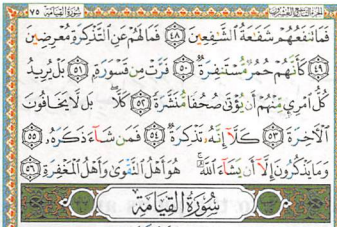 سُورَةُ القِيَامَةِ ٧٥
فَمَا تَنفَعُهُمْ شَفَٰعَةُ ٱلشَّٰفِعِينَ ٤٨ فَمَا لَهُمْ عَنِ ٱلتَّذْكِرَةِ مُعْرِضِينَ
٤٩ كَأَنَّهُمْ حُمُرٌ مُّسْتَنفِرَةٌ ٥٠ فَرَّتْ مِن قَسْوَرَةٍۭ ٥١ بَلْ يُرِيدُ
كُلُّ ٱمْرِئٍ مِّنْهُمْ أَن يُؤْتَىٰ صُحُفًا مُّنَشَّرَةً ٥٢ كَلَّا ۖ بَل لَّا يَخَافُونَ
ٱلْءَاخِرَةَ ٥٣ كَلَّآ إِنَّهُۥ تَذْكِرَةٌ ٥٤ فَمَن شَآءَ ذَكَرَهُۥ ٥٥
وَمَا يَذْكُرُونَ إِلَّآ أَن يَشَآءَ ٱللَّهُ ۚ هُوَ أَهْلُ ٱلتَّقْوَىٰ وَأَهْلُ ٱلْمَغْفِرَةِ ٥٦
سُورَةُ القِيَامَةِ